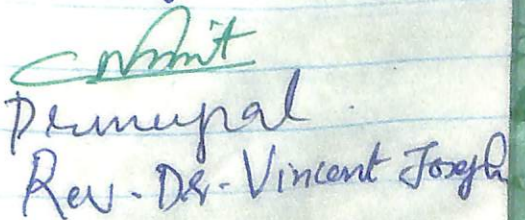 Principal
Rev. Dr. Vincent Joseph